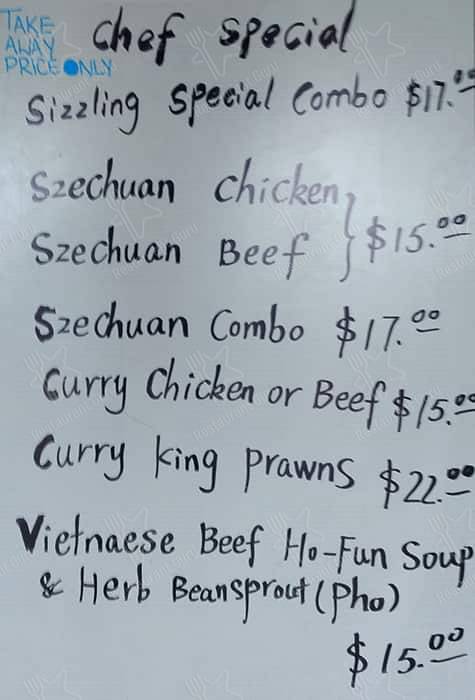 TAKE
AWAY
PRICE ONLY
Chef Special
Sizzling Special Combo $17.00
Szechuan Chicken
Szechuan Beef } $15.00
Szechuan Combo $17.00
Curry Chicken or Beef $15.00
Curry king Prawns $22.00
Vietnaese Beef Ho-Fun Soup
& Herb Beansprout (Pho)
$15.00